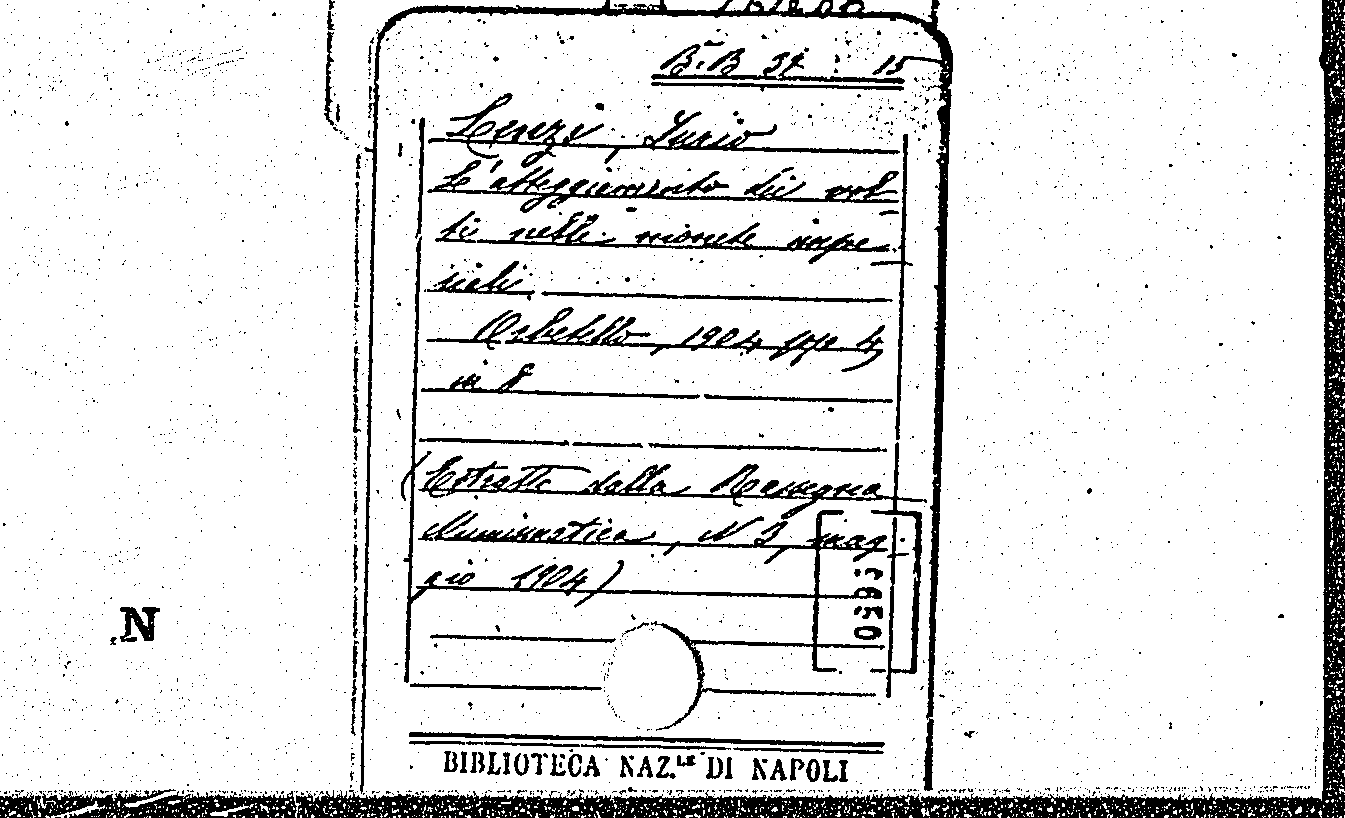 B.B 34 15
Lenzi, Furio
L'atteggiamento dei vol-
ti nelle monete impe-
riali
Orbetello, 1904 pp. 4
in 8
(Estratto dalla Rassegna
Numismatica, N 3, mag-
gio 1904)
N
BIBLIOTECA NAZ.LE DI NAPOLI